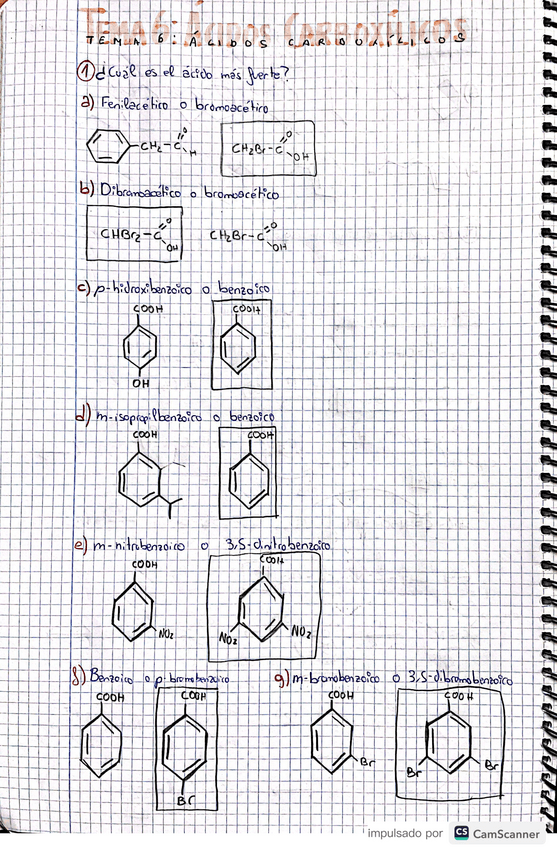 TEMA 6: ÁCIDOS CARBOXÍLICOS
TEMA 6: ÁCIDOS CARBOXÍLICOS
① ¿Cuál es el ácido más fuerte?
a) Fenilacético o bromoacético
CH₂-C O H CH₂Br-C O OH
b) Dibromoacético o bromoacético
CHBr₂-C O OH CH₂Br-C O OH
c) p-hidroxibenzoico o benzoico
COOH COOH
OH
d) m-isopropilbenzoico o benzoico
COOH COOH
e) m-nitrobenzoico o 3,5-dinitrobenzoico
COOH COOH
NO₂ NO₂ NO₂
f) Benzoico o p-bromobenzoico g) m-bromobenzoico o 3,5-dibromobenzoico
COOH COOH COOH COOH
Br Br Br
Br
impulsado por CS CamScanner